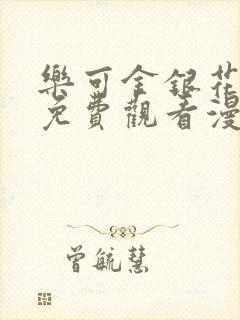 樂可金銀花
免費觀看漫
曾毓慧